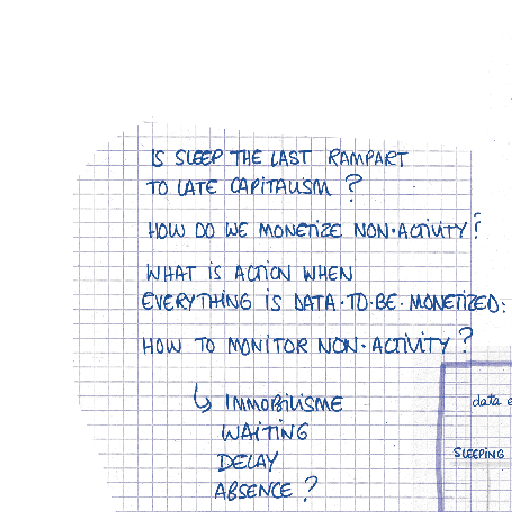 IS SLEEP THE LAST RAMPART
TO LATE CAPITALISM ?
HOW DO WE MONETIZE NON-ACTIVITY ?
WHAT IS ACTION WHEN
EVERYTHING IS DATA-TO-BE-MONETIZED:
HOW TO MONITOR NON-ACTIVITY ?
↳ IMMOBILISME
WAITING
DELAY
ABSENCE ?
data
SLEEPING